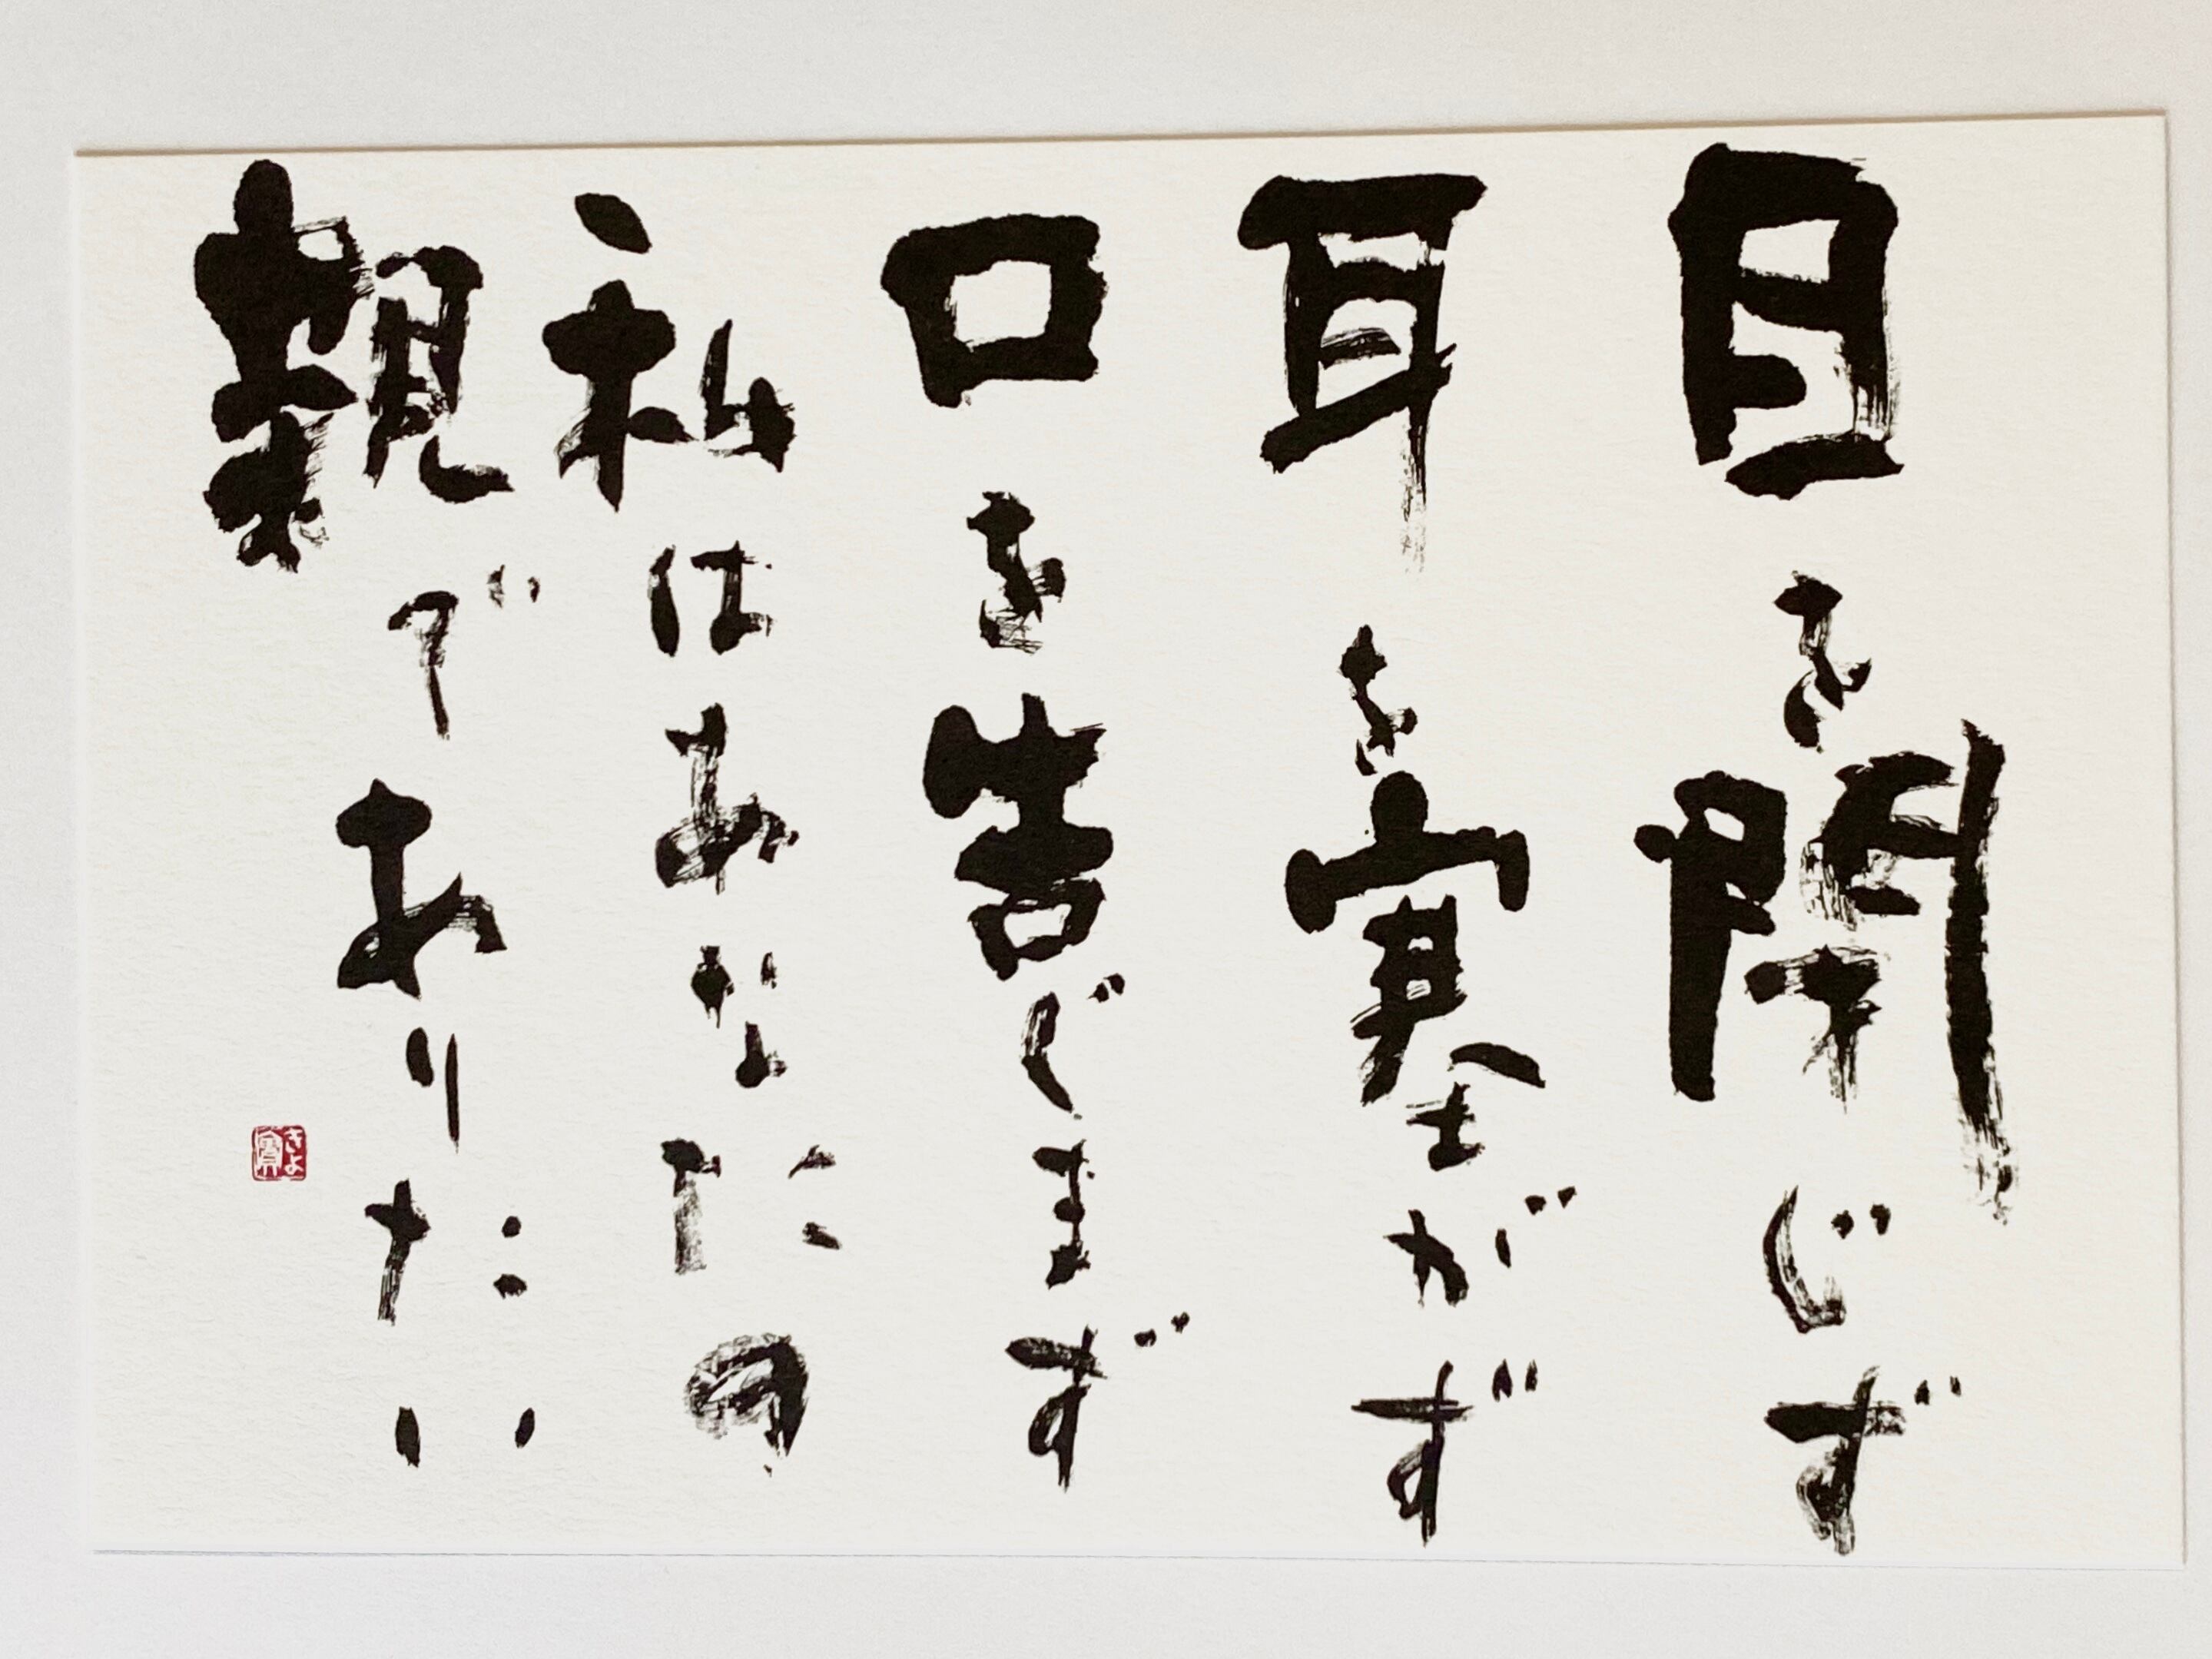 目を閉じず
耳を塞がず
口を告ぐまず
私はあなたの
親でありたい
きよ